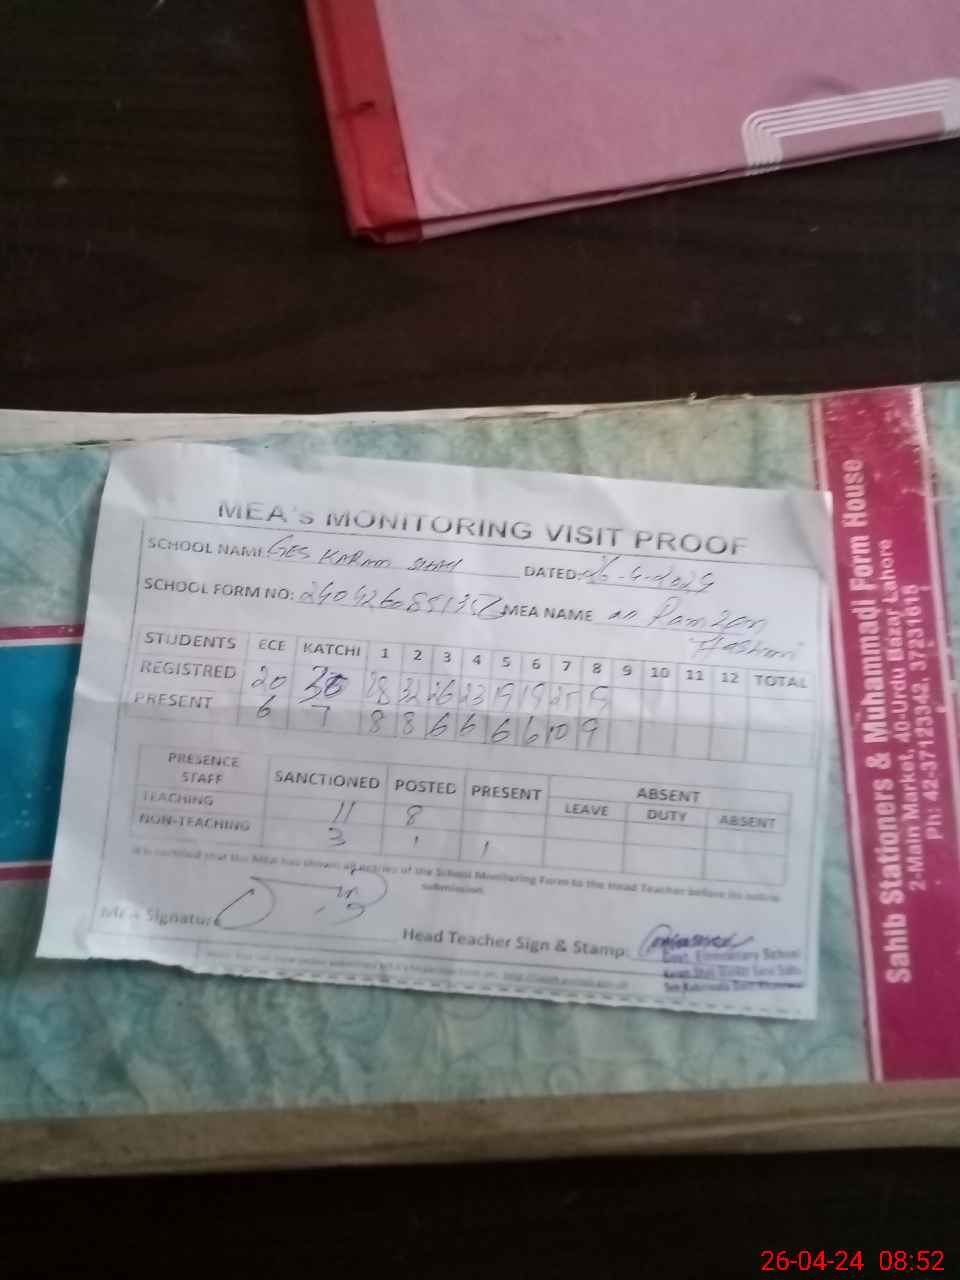 MEA's MONITORING VISIT PROOF
SCHOOL NAME GES KARAM SHAH DATED: 26-4-2024
SCHOOL FORM NO: MEA NAME Ramzan
Hashmi
STUDENTS ECE KATCHI 1 2 3 4 5 6 7 8 9 10 11 12 TOTAL
REGISTRED 20 28 32 26 23 19 19 25 9
PRESENT 6 7 8 8 6 6 6 6 10 9
PRESENCE STAFF SANCTIONED POSTED PRESENT ABSENT
LEAVE DUTY ABSENT
TEACHING 11 8
NON-TEACHING 3 1 1
It is certified that the MEA has shown all entries of the School Monitoring Form to the Head Teacher before its online
submission.
MEA Signature
Head Teacher Sign & Stamp:
Govt. Elementary School
Sahib Stationers & Muhammadi Form House
2-Main Market, 40-Urdu Bazar Lahore
Ph: 42-37123342, 37231615
26-04-24 08:52